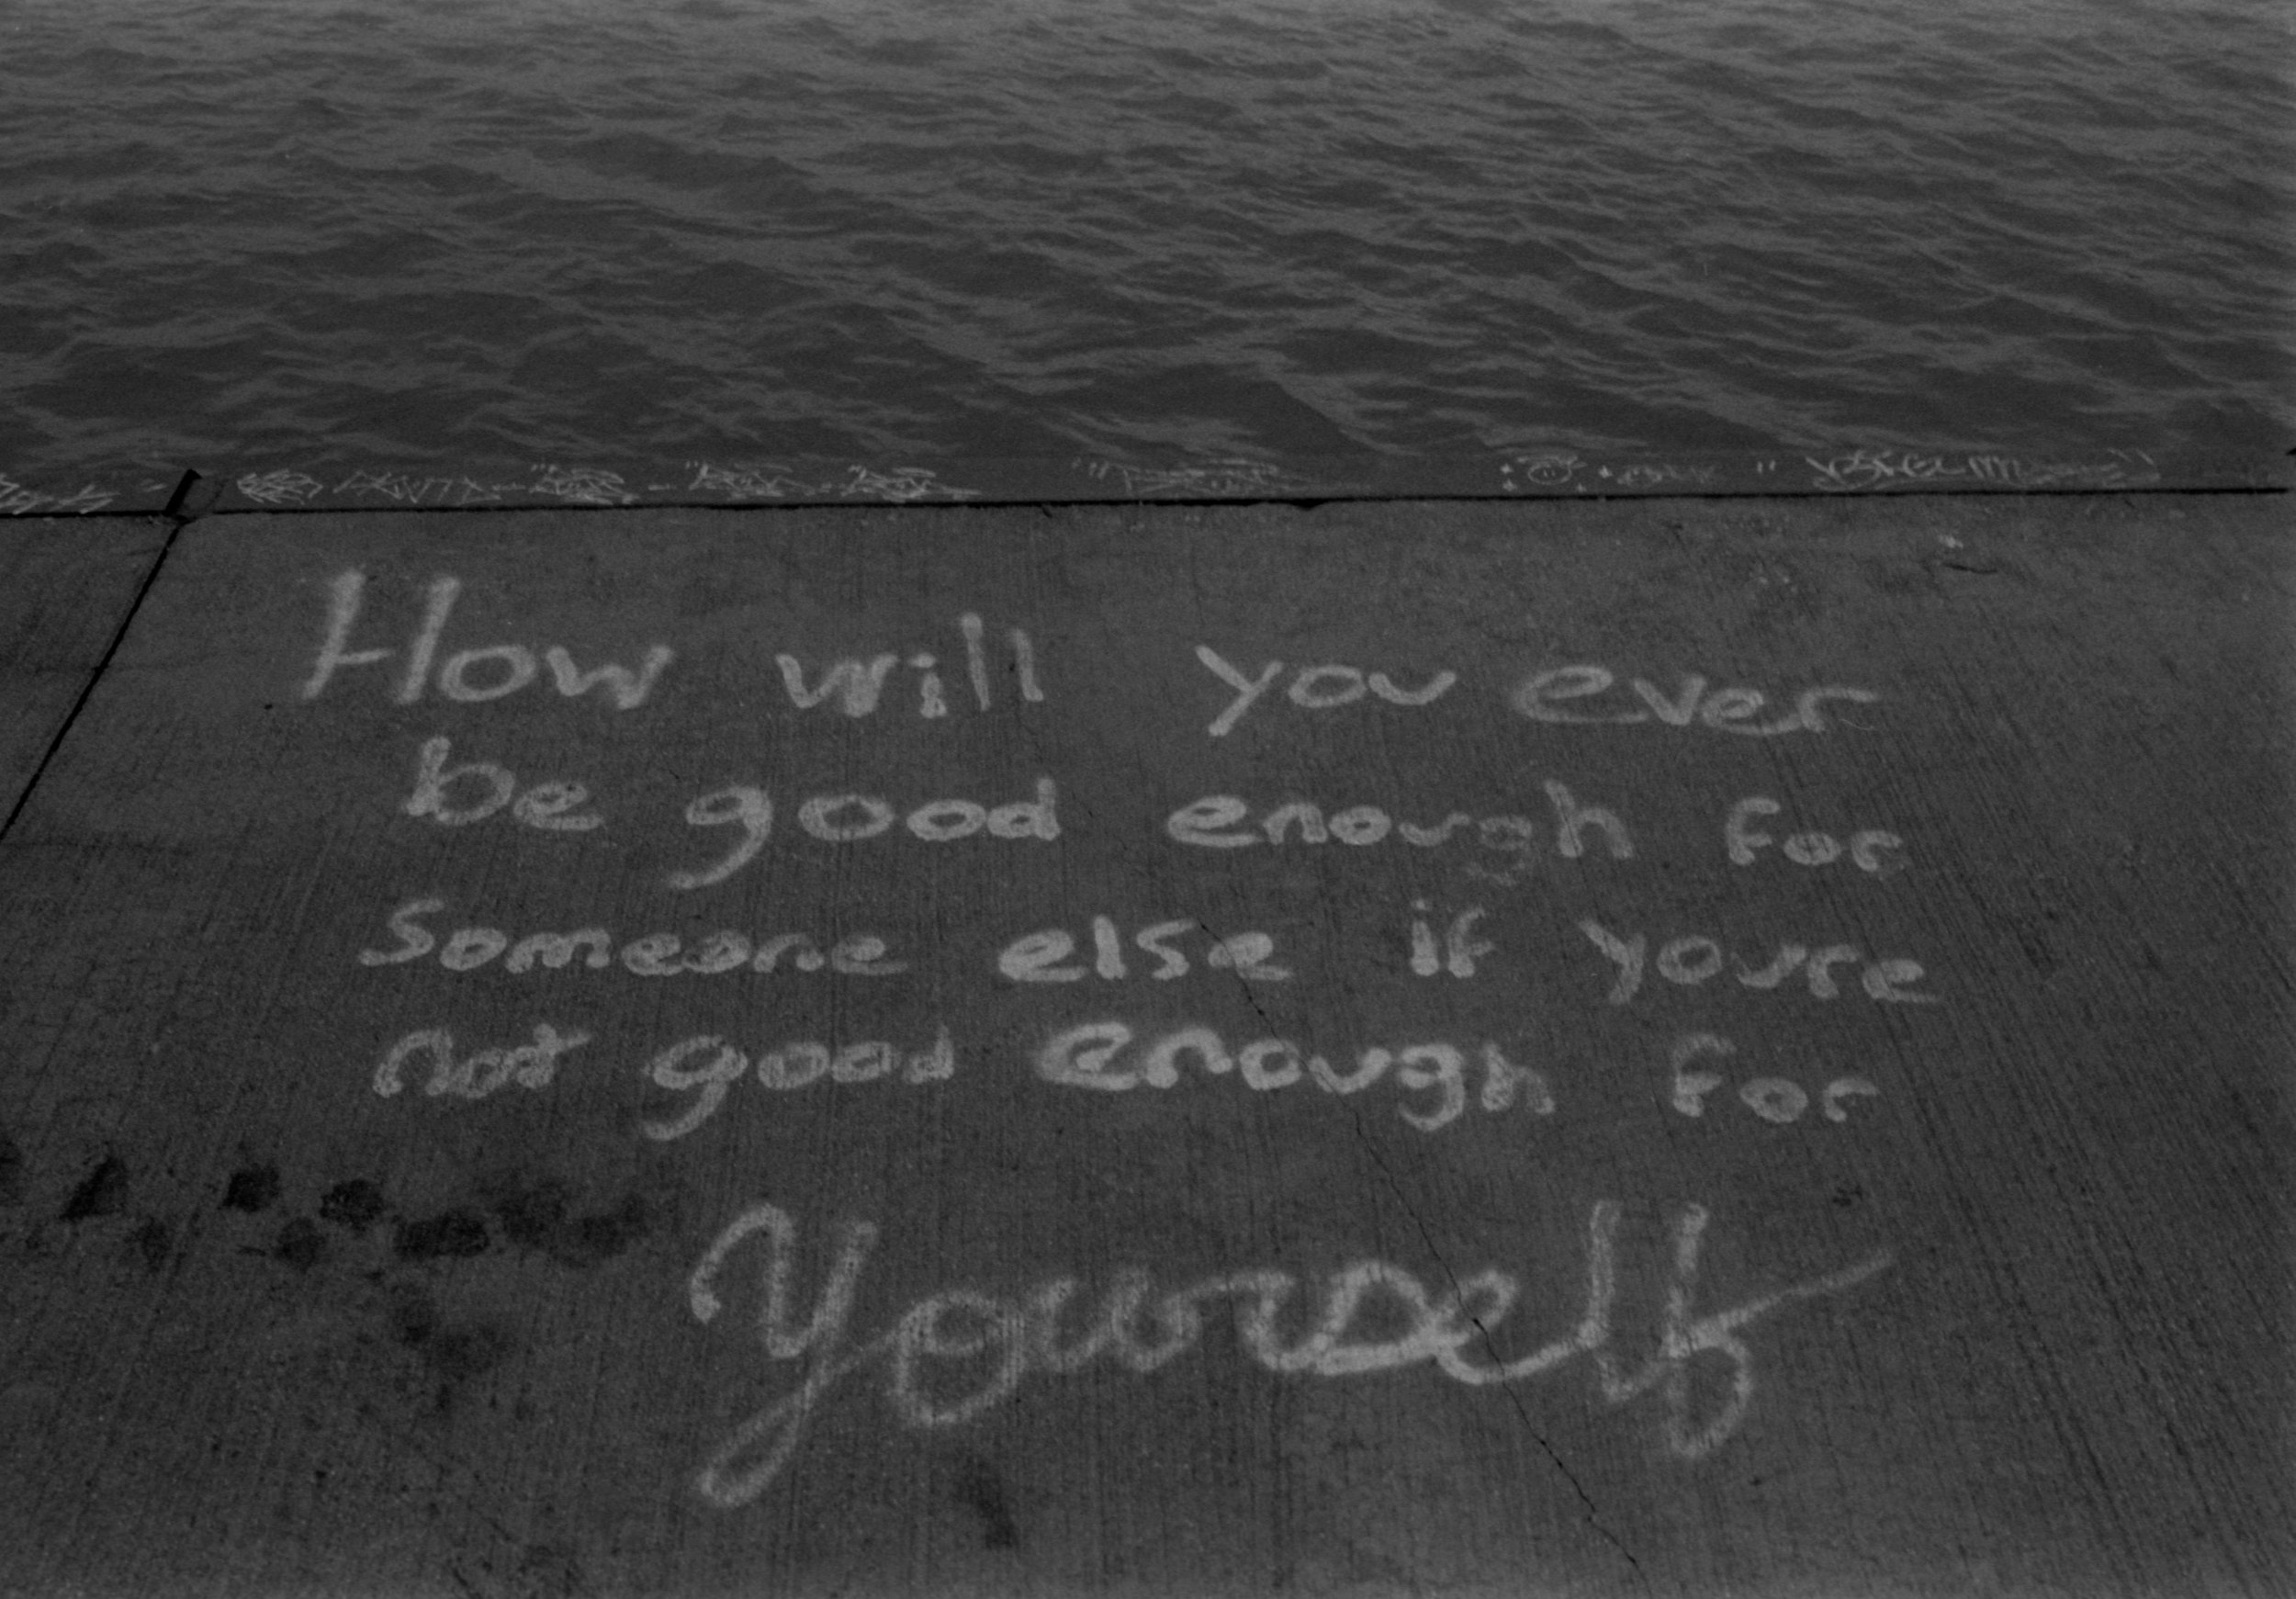 How will you ever
be good enough for
someone else if youre
not good enough for
Yourself